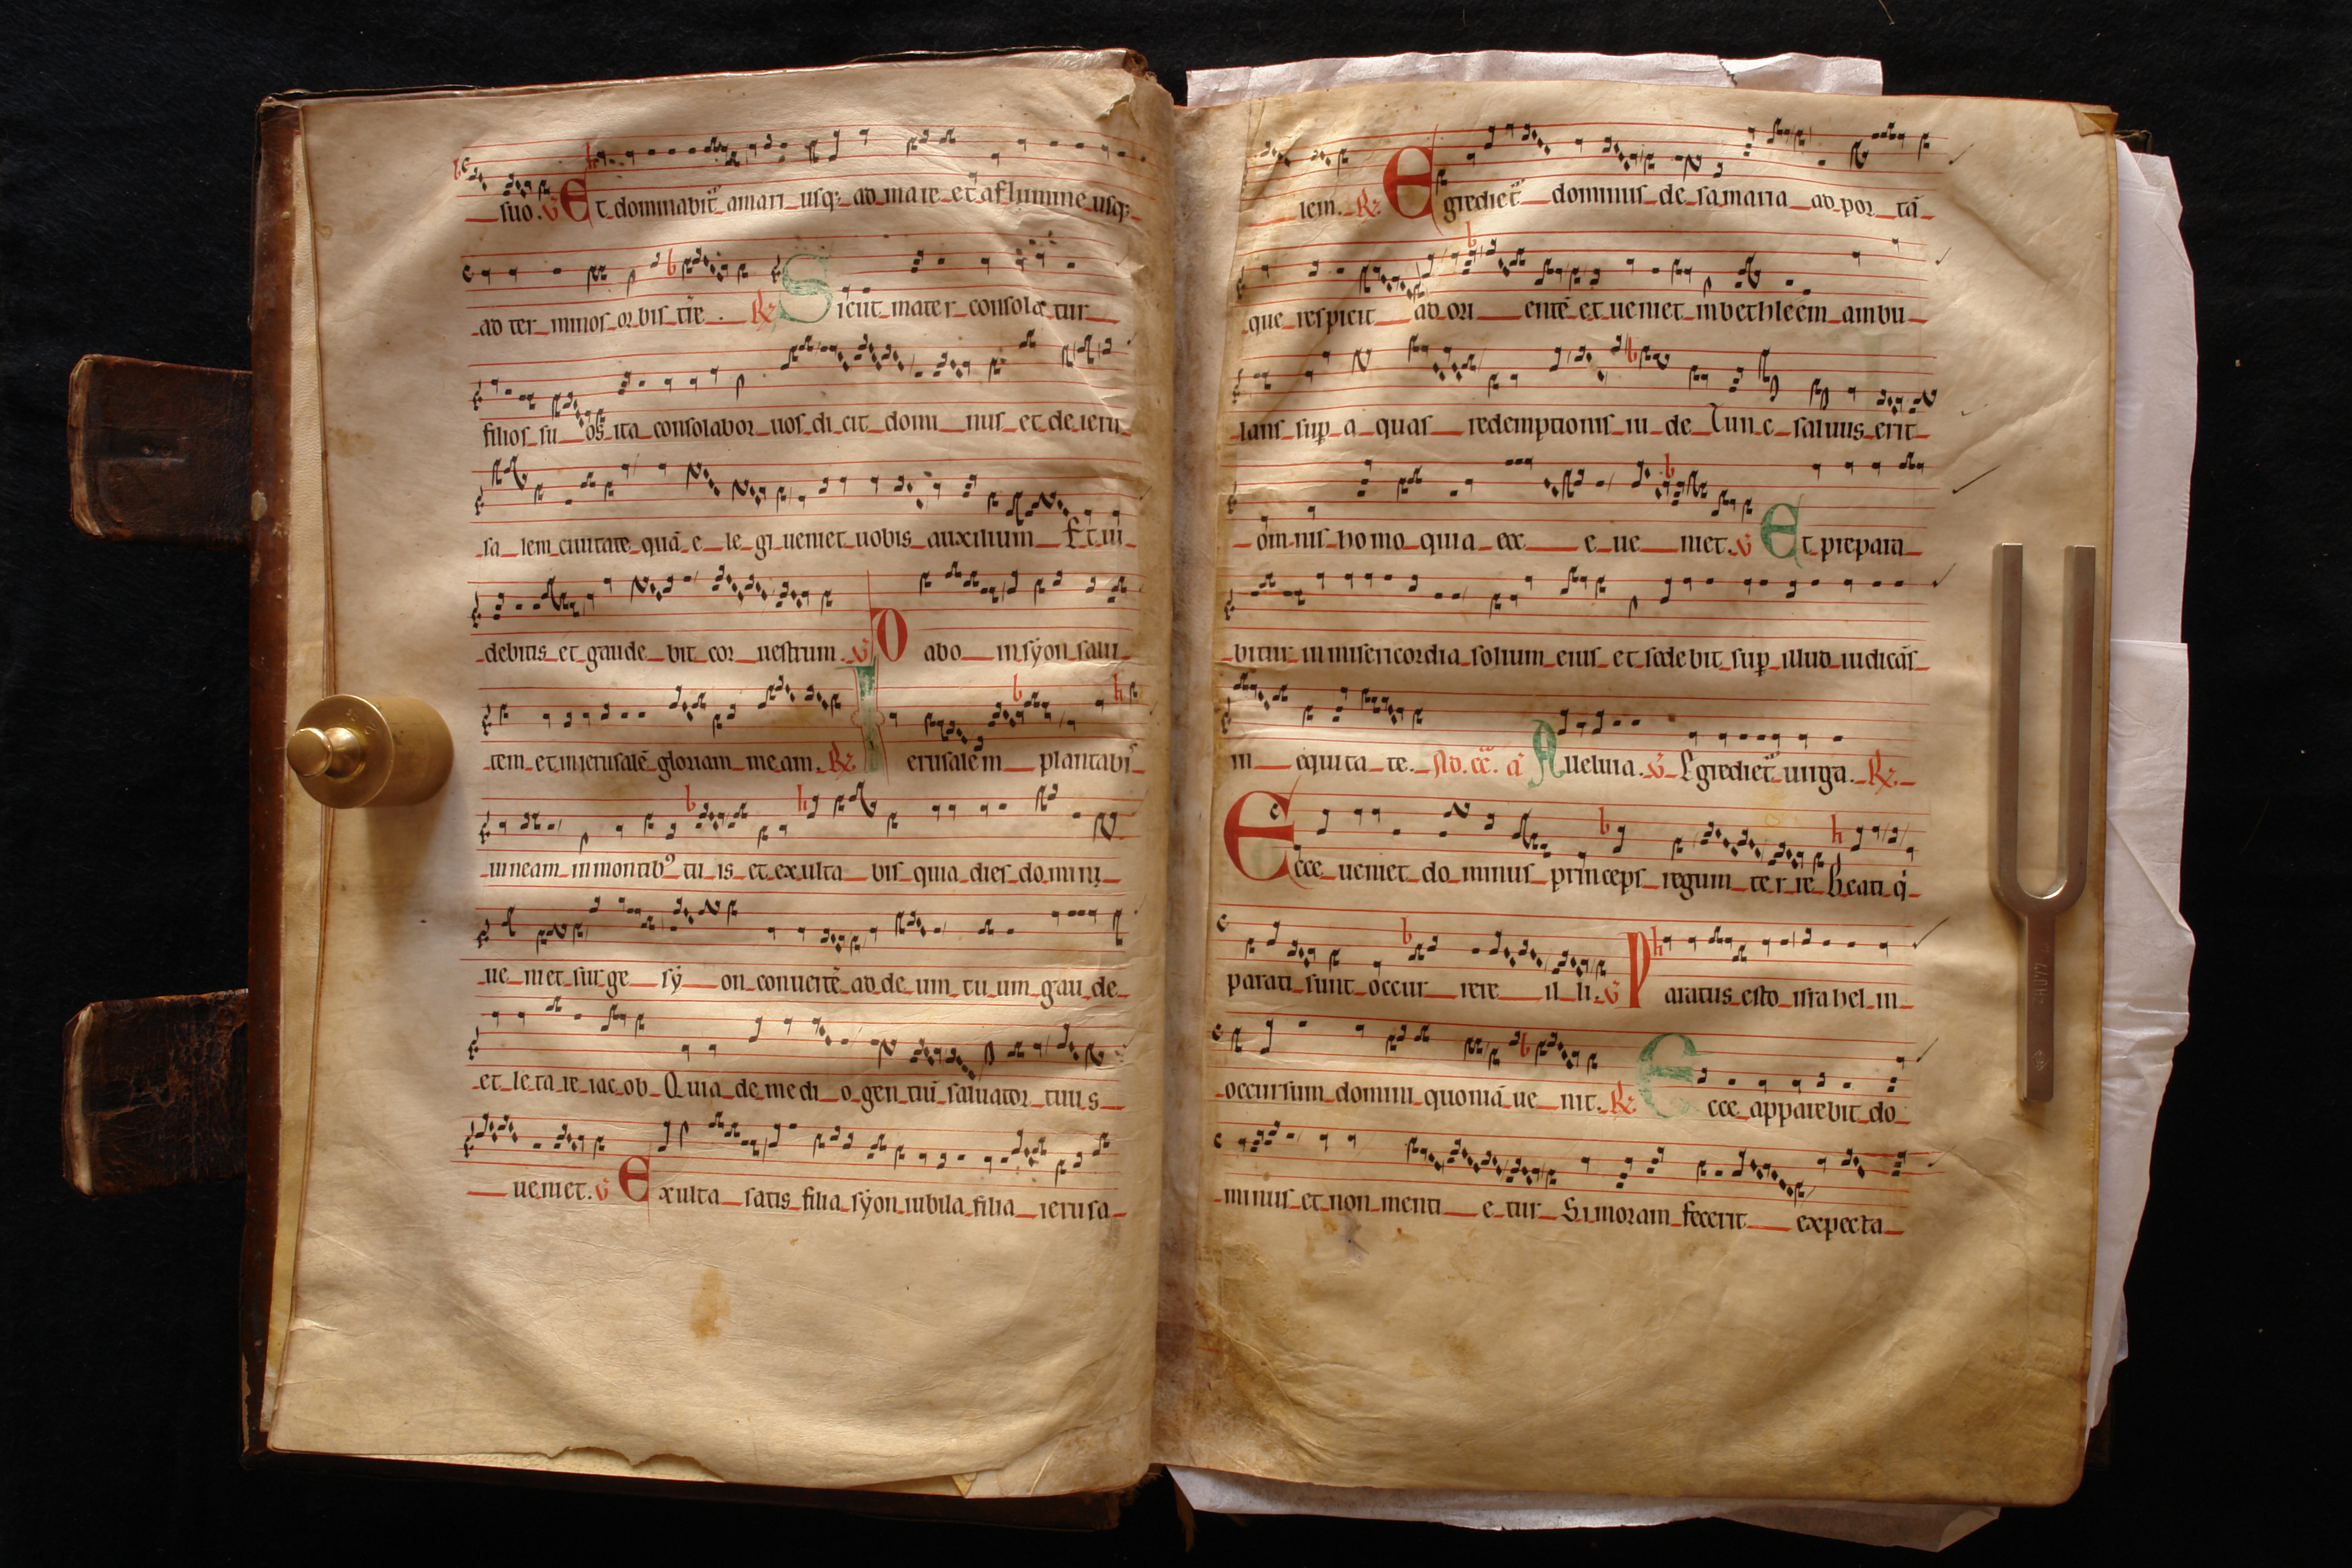 suo. V Et dominabit᷑ a mari usq; ad mare et a flumine usq;
ad ter minos orbis tr̄e. R Sicut mater consola tur
filios su os ita consolabor uos di cit domi nus et de ieru
sa lem ciuitate quā e le gi ueniet uobis auxilium Et ui
debitis et gaude bit cor uestrum. V Dabo in sẏon salu
tem et in ierusalē gloriam meam. R Ierusalem plantabis
uineam in montibꝰ tu is et exulta bis quia dies domini
ue niet surge sẏ on conuertē ad de um tu um gau de
et le ta re iac ob Quia de medi o gen tiū saluator tuus
ueniet. V Exulta satis filia sẏon iubila filia ierusa
lem. R Egrediet᷑ dominus de samaria ad por tā
que respicit ad ori entē et ueniet in bethleem ambu
lans sup̱ a quas redemptionis iu de Tunc saluus erit
omnis homo quia ecc e ue niet. V Et prepara
bitur in misericordia solium eius et sedebit sup̱ illud iudicās
in equita te. Ad. cē. a᷑ Aueluia. V Egrediet᷑ uirga. R
Ecce ueniet do minus princeps regum ter re Beati q̇
parati sunt occur rere il li. V Paratus esto israhel in
occursum domini quoniā ue nit. R Ecce apparebit do
minus et non menti e tur Si moram fecerit expecta